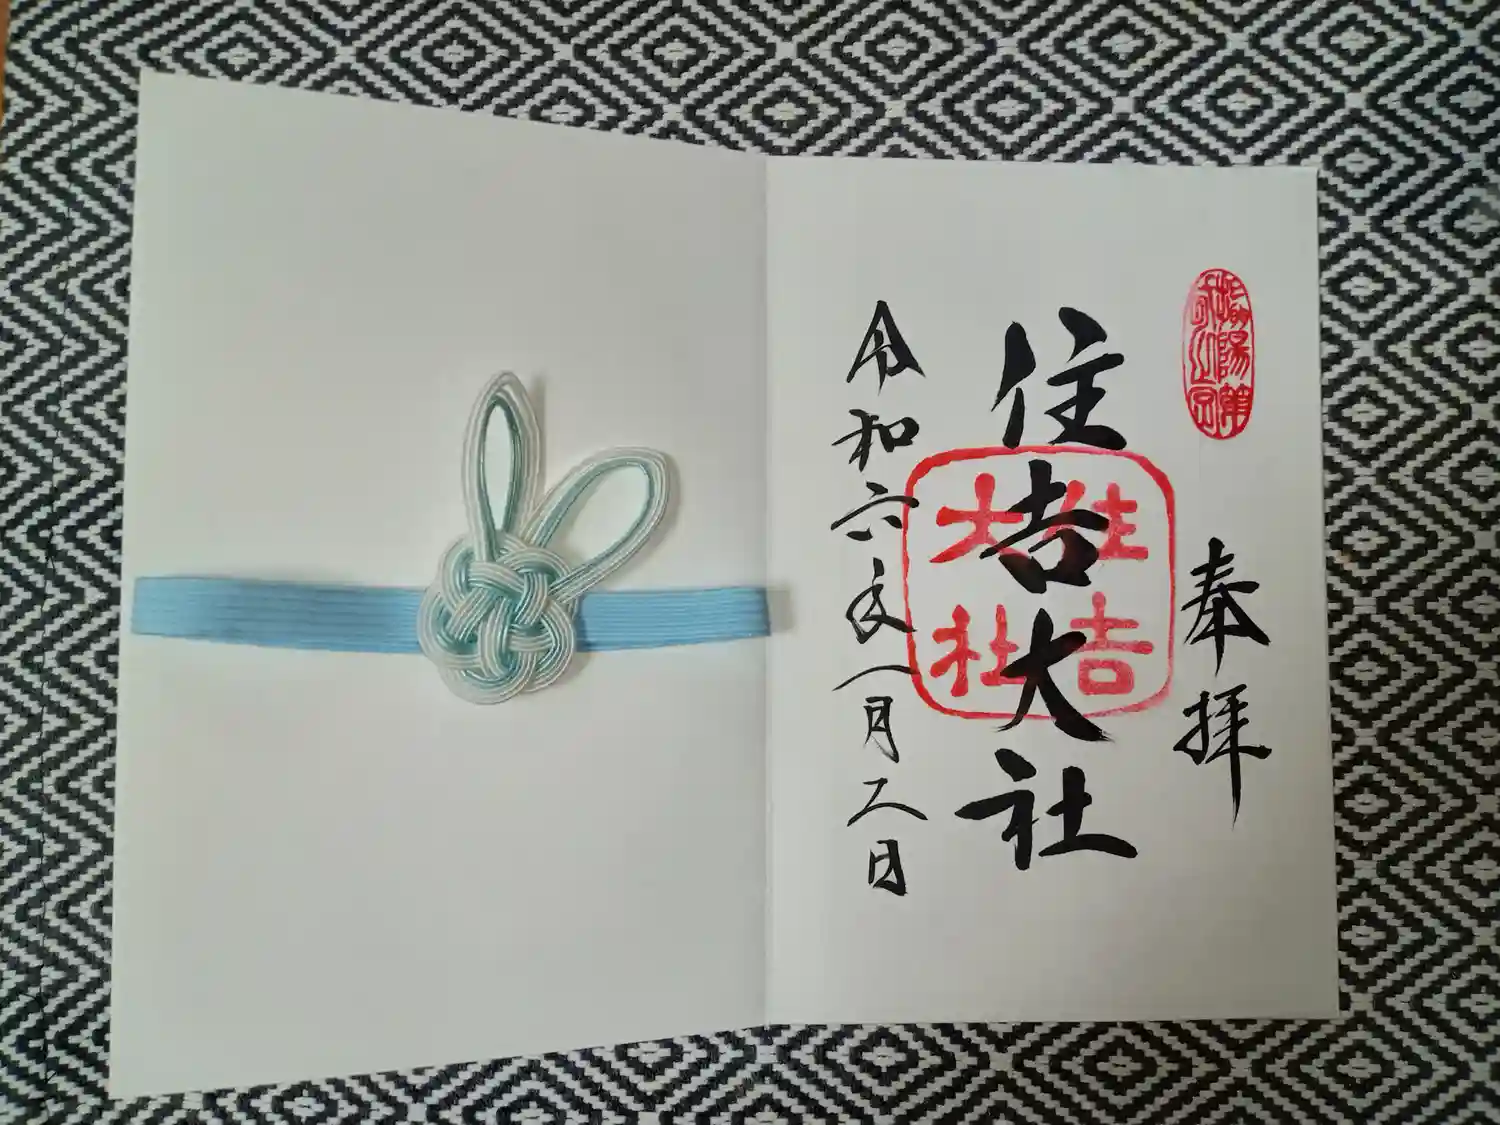 奉拝
住吉大社
住吉
大社
令和六年八月日